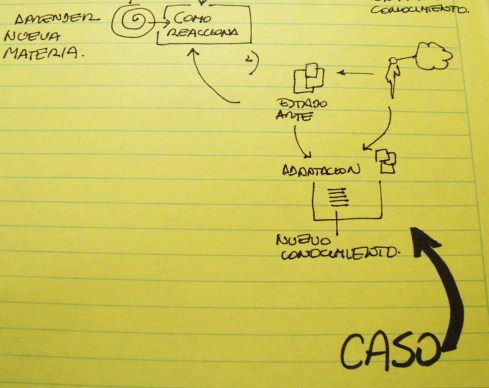 APRENDER
NUEVA
MATERIA.
COMO
REACCIONA
CONOCIMIENTO.
2)
ESTADO
ARTE
ADAPTACION
NUEVO
CONOCIMIENTO.
CASO